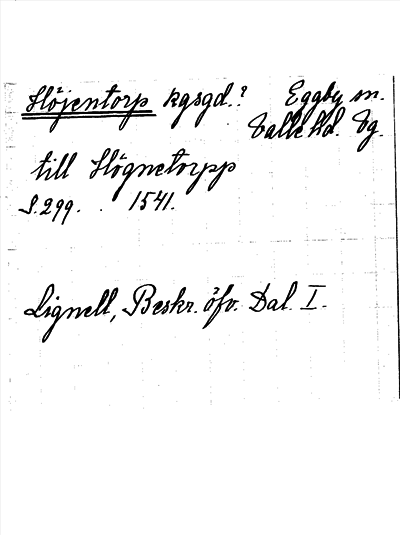 Höjentorp kgsgd.? Eggby sn.
Valle hd. Vg.
till Högnetorpp
S. 299. . 1541.
Lignell, Beskr. öfv. Dal. I.